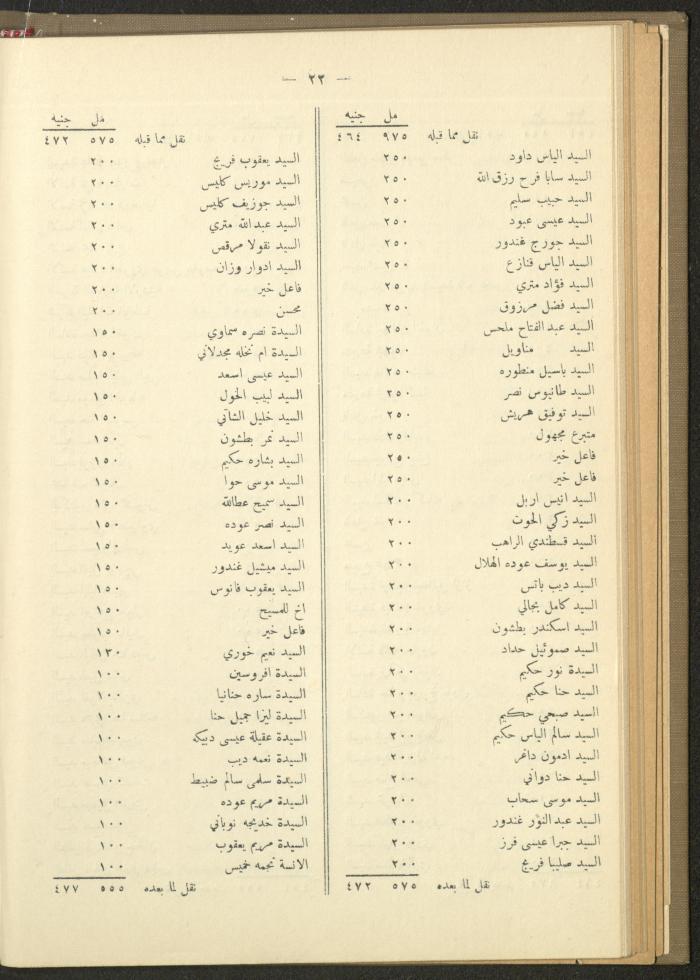 — ٢٢ —
مل جنيه
نقل مما قبله ٩٧٥ ٤٦٤
السيد الياس داود ٢٥٠
السيد سابا فرح رزق الله ٢٥٠
السيد حبيب سليم ٢٥٠
السيد عيسى عبود ٢٥٠
السيد جورج غندور ٢٥٠
السيد الياس قنازع ٢٥٠
السيد فؤاد متري ٢٥٠
السيد فضل مرزوق ٢٥٠
السيد عبد الفتاح ملحس ٢٥٠
السيد مناويل ٢٥٠
السيد باسيل منطوره ٢٥٠
السيد طانيوس نصر ٢٥٠
السيد توفيق همريش ٢٥٠
متبرع مجهول ٢٥٠
فاعل خير ٢٥٠
فاعل خير ٢٥٠
السيد انيس اربل ٢٠٠
السيد زكي الحوت ٢٠٠
السيد قسطندي الراهب ٢٠٠
السيد يوسف عوده الهلال ٢٠٠
السيد ديب باتس ٢٠٠
السيد كامل بجالي ٢٠٠
السيد اسكندر بطشون ٢٠٠
السيد صموئيل حداد ٢٠٠
السيدة نور حكيم ٢٠٠
السيد حنا حكيم ٢٠٠
السيد صبحي حكيم ٢٠٠
السيد سالم الياس حكيم ٢٠٠
السيد ادمون داغر ٢٠٠
السيد حنا دواني ٢٠٠
السيد موسى سحاب ٢٠٠
السيد عبد النور غندور ٢٠٠
السيد جبرا عيسى فرز ٢٠٠
السيد صليبا فريج ٢٠٠
نقل لما بعده ٥٧٥ ٤٧٢
مل جنيه
نقل مما قبله ٥٧٥ ٤٧٢
السيد يعقوب فريج ٢٠٠
السيد موريس كليس ٢٠٠
السيد جوزيف كليس ٢٠٠
السيد عبد الله متري ٢٠٠
السيد نقولا مرقص ٢٠٠
السيد ادوار وزان ٢٠٠
فاعل خير ٢٠٠
محسن ٢٠٠
السيدة نصره سماوي ١٥٠
السيدة ام نخله مجدلاني ١٥٠
السيد عيسى اسعد ١٥٠
السيد لبيب الخول ١٥٠
السيد خليل الشاتي ١٥٠
السيد نمر بطشون ١٥٠
السيد بشاره حكيم ١٥٠
السيد موسى حوا ١٥٠
السيد سميح عطالله ١٥٠
السيد نصر عوده ١٥٠
السيد اسعد عويد ١٥٠
السيد ميشيل غندور ١٥٠
السيد يعقوب فانوس ١٥٠
اخ للمسيح ١٥٠
فاعل خير ١٥٠
السيد نعيم خوري ١٣٠
السيدة افروسين ١٠٠
السيدة ساره حنانيا ١٠٠
السيدة ليزا جميل حنا ١٠٠
السيدة عقيلة عيسى دبيكه ١٠٠
السيدة نعمه ديب ١٠٠
السيدة سلمى سالم ضبيط ١٠٠
السيدة مريم عوده ١٠٠
السيدة خديجه نوباني ١٠٠
السيدة مريم يعقوب ١٠٠
الانسة نجمه خميس ١٠٠
نقل لما بعده ٥٥٥ ٤٧٧